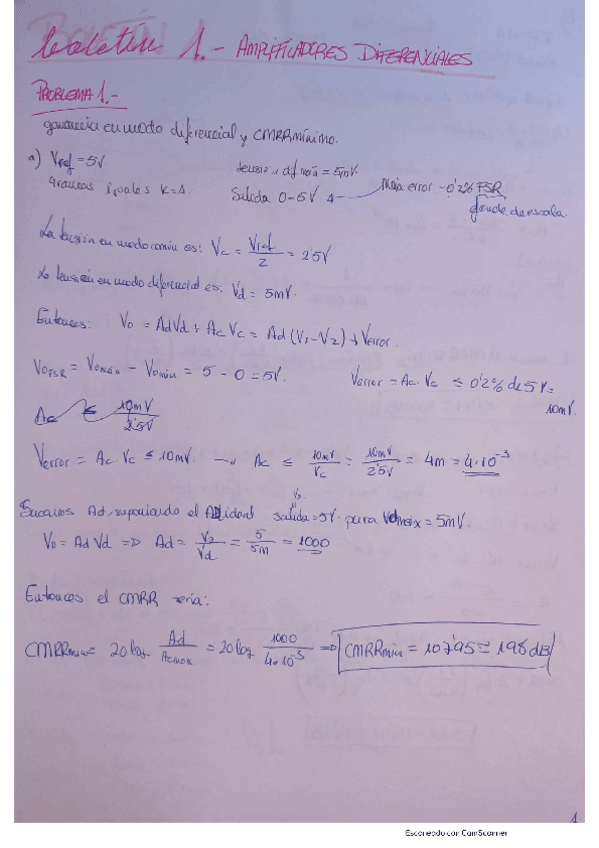 Boletín 1.- AMPLIFICADORES DIFERENCIALES
PROBLEMA 1.-
ganancia en modo diferencial y CMRR mínimo.
a) Vref = 5V. tensión dif máx = 5mV
4 ramas iguales K=1. Salida 0-5V Max error - 0'2% FSR
fondo de escala
La tensión en modo común es: Vc = Vref/2 = 2'5V
La tensión en modo diferencial es: Vd = 5mV.
Entonces: Vo = AdVd + AcVc = Ad (V1-V2) + Verror.
VoFSR = Vomáx - Vomín = 5 - 0 = 5V. Verror = Ac.Vc ≤ 0'2% de 5V =
10mV.
Ac ≤ 10mV/2'5V
Verror = Ac.Vc ≤ 10mV. → Ac ≤ 10mV/Vc = 10mV/2'5V = 4m = 4·10⁻³
Sacamos Ad suponiendo el ideal salida = 5V para Vdmáx = 5mV.
Vo = Ad Vd => Ad = Vo/Vd = 5/5m = 1000
Entonces el CMRR sería:
CMRRmin = 20 log Ad/Acmax = 20 log 1000/4·10⁻³ => CMRRmin = 107'95 ≅ 198 dB
1
Escaneado con CamScanner